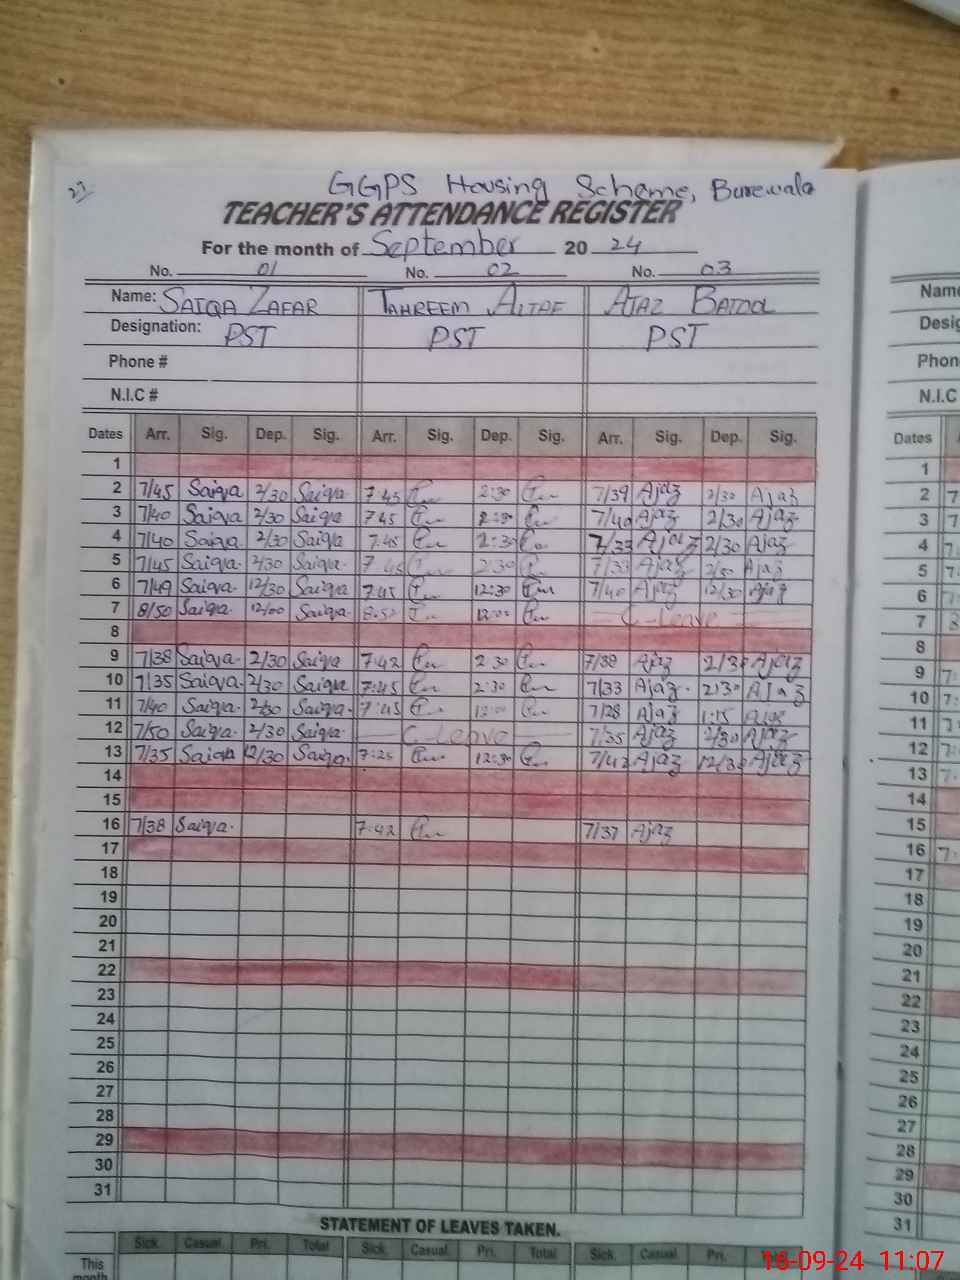 27
GGPS Housing Scheme, Burewala
TEACHER'S ATTENDANCE REGISTER
For the month of September 20 24
No. 01 No. 02 No. 03
Name: SAIQA ZAFAR TAHREEM ALTAF AJAZ BATOOL Name
Designation: PST PST PST Desig
Phone # Phon
N.I.C # N.I.C
Dates Arr. Sig. Dep. Sig. Arr. Sig. Dep. Sig. Arr. Sig. Dep. Sig. Dates
1 1
2 7/45 Saiqa 2/30 Saiqa 7:45 2:30 7/39 Ajaz 2/30 Ajaz 2
3 7/40 Saiqa 2/30 Saiqa 7:45 2:30 7/40 Ajaz 2/30 Ajaz 3
4 7/40 Saiqa 2/30 Saiqa 7:45 2:30 7/33 Ajaz 2/30 Ajaz 4
5 7/45 Saiqa. 2/30 Saiqa. 7:45 2:30 7/33 Ajaz 2/30 Ajaz 5
6 7/49 Saiqa. 12/30 Saiqa. 7:45 12:30 7/40 Ajaz 12/30 Ajaz 6
7 8/50 Saiqa. 12/00 Saiqa. 8:52 12:00 C-Leave 7
8 8
9 7/38 Saiqa. 2/30 Saiqa 7:42 2:30 7/38 Ajaz 2/30 Ajaz 9
10 7/35 Saiqa. 2/30 Saiqa. 7:45 2:30 7/33 Ajaz. 2:30 Ajaz 10
11 7/40 Saiqa. 2/30 Saiqa. 7:45 12:00 7/28 Ajaz 1:15 Ajaz 11
12 7/50 Saiqa. 2/30 Saiqa. C-Leave 7/35 Ajaz 2/30 Ajaz 12
13 7/35 Saiqa 12/30 Saiqa. 7:25 12:30 7/42 Ajaz 12/30 Ajaz 13
14 14
15 15
16 7/38 Saiqa. 7:42 7/37 Ajaz 16
17 17
18 18
19 19
20 20
21 21
22 22
23 23
24 24
25 25
26 26
27 27
28 28
29 29
30 30
31 31
STATEMENT OF LEAVES TAKEN.
Sick. Casual. Pri. Total Sick. Casual. Pri. Total Sick. Casual. Pri.
This
month
16-09-24 11:07